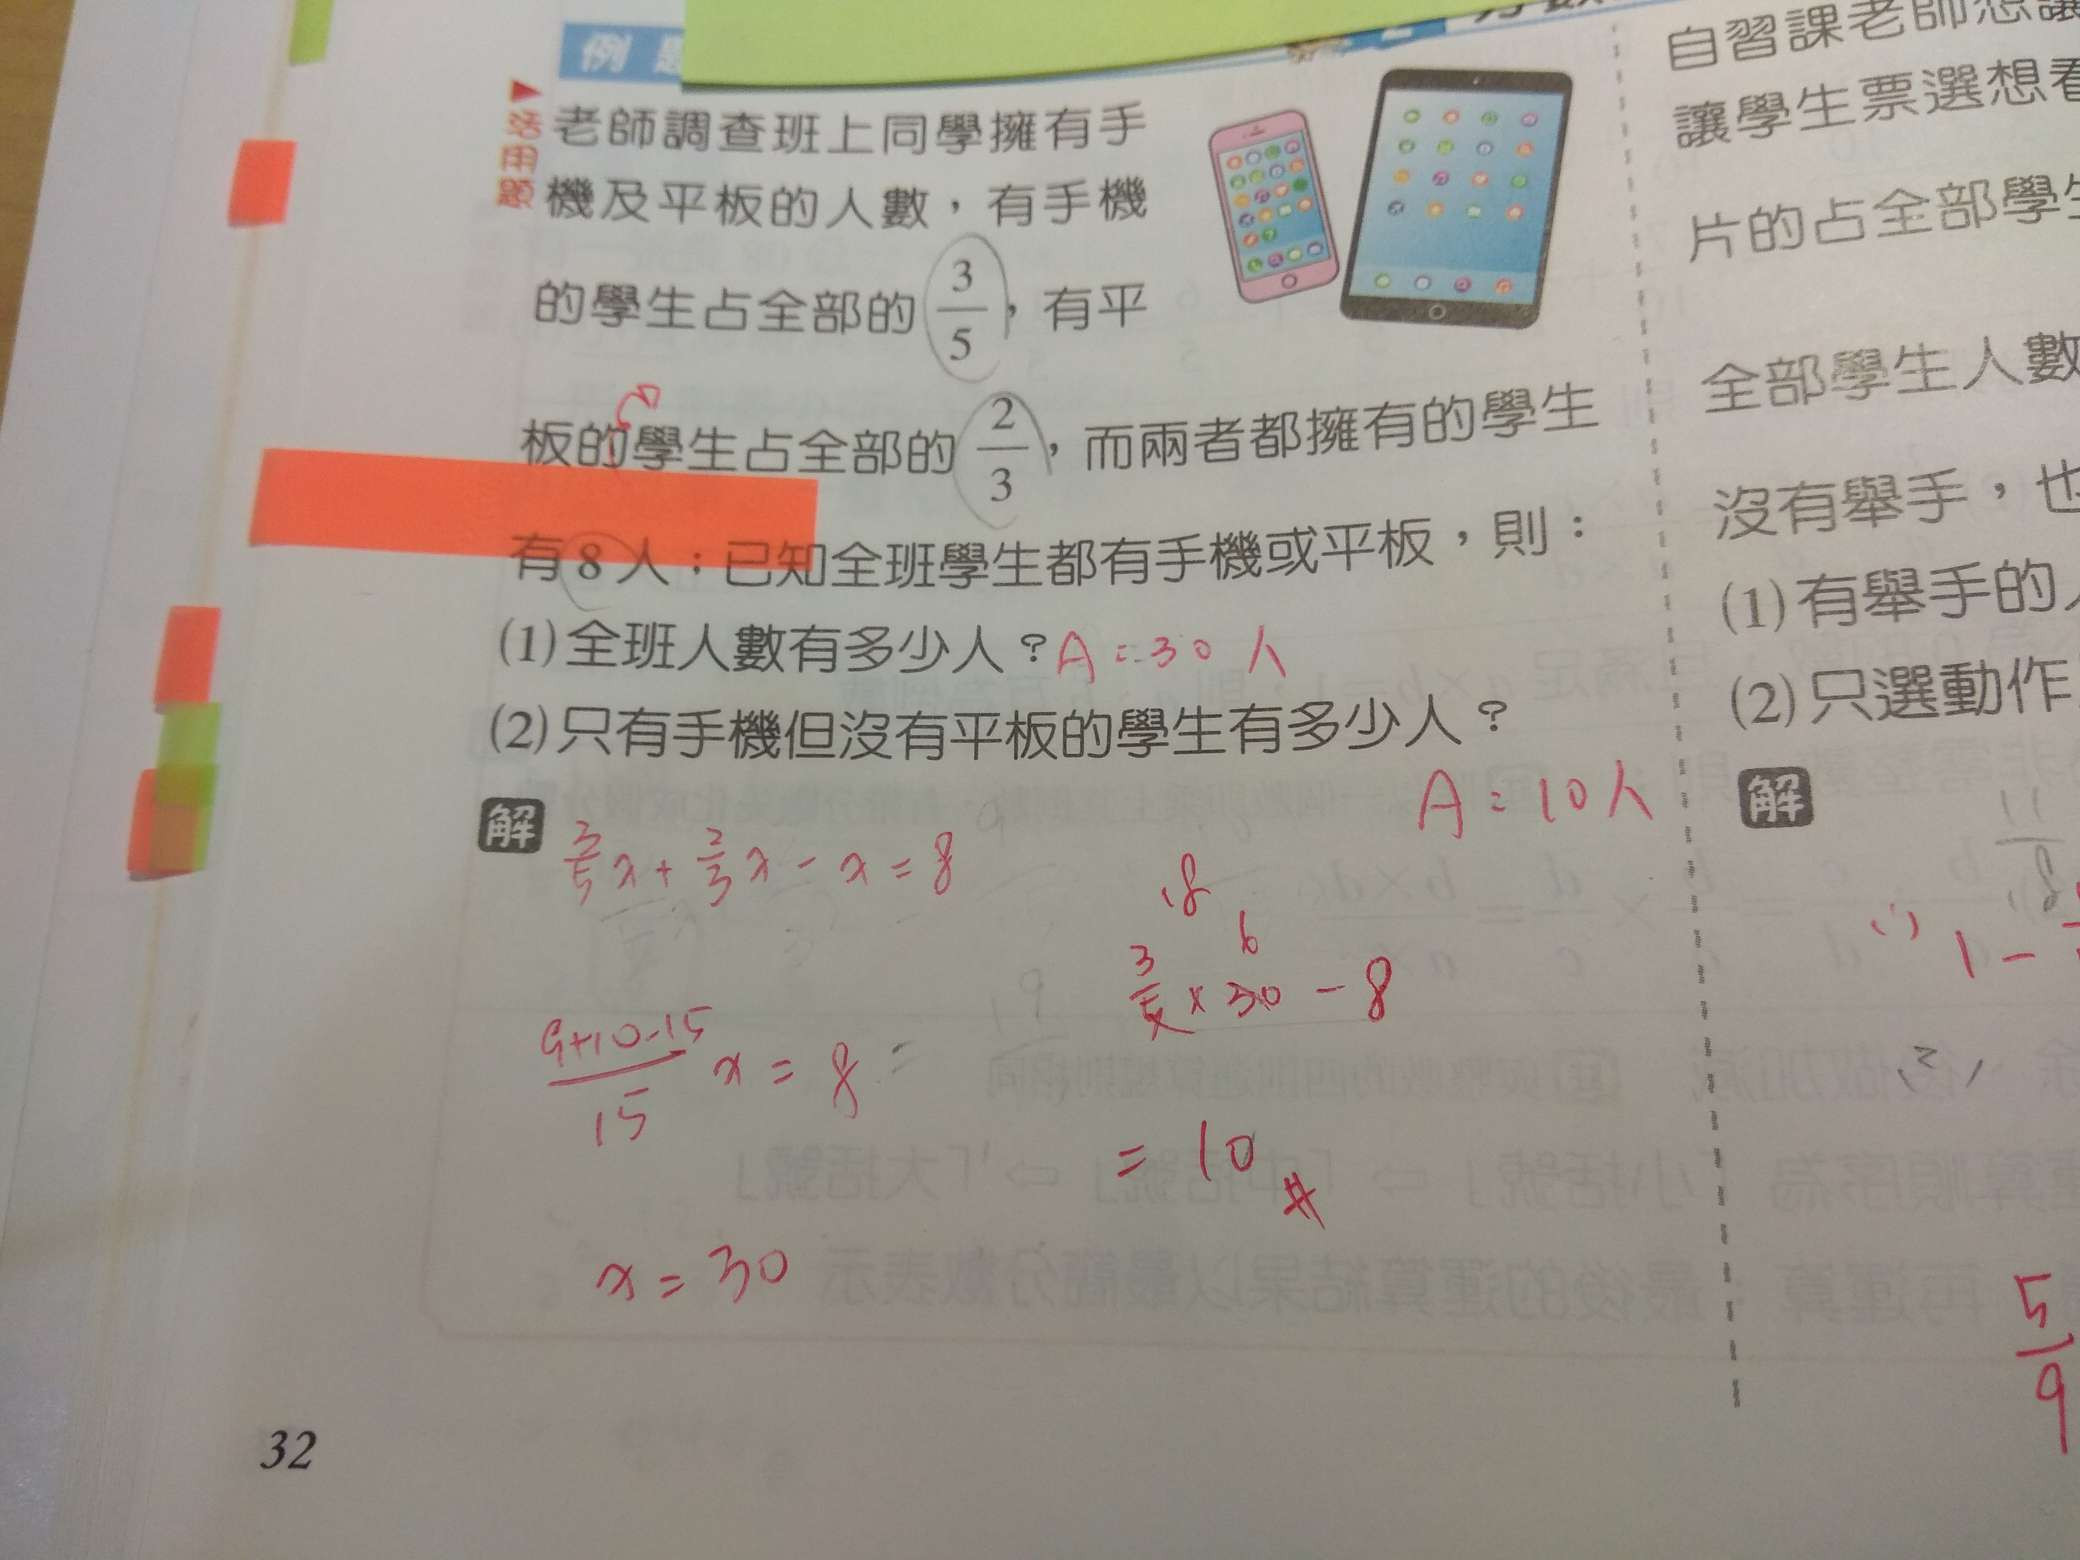 例 題
活用題
老師調查班上同學擁有手
機及平板的人數，有手機
的學生占全部的 3/5，有平
板的學生占全部的 2/3，而兩者都擁有的學生
有8人；已知全班學生都有手機或平板，則：
(1)全班人數有多少人？A=30人
(2)只有手機但沒有平板的學生有多少人？
A=10人
解
3/5x+2/3x-x=8
(9+10-15)/15 x=8
x=30
18
6
3/5×30-8
=10#
32
自習課老師想讓
讓學生票選想看
片的占全部學生
全部學生人數
沒有舉手，也
(1)有舉手的人
(2)只選動作
解
(1) 1-
5/9